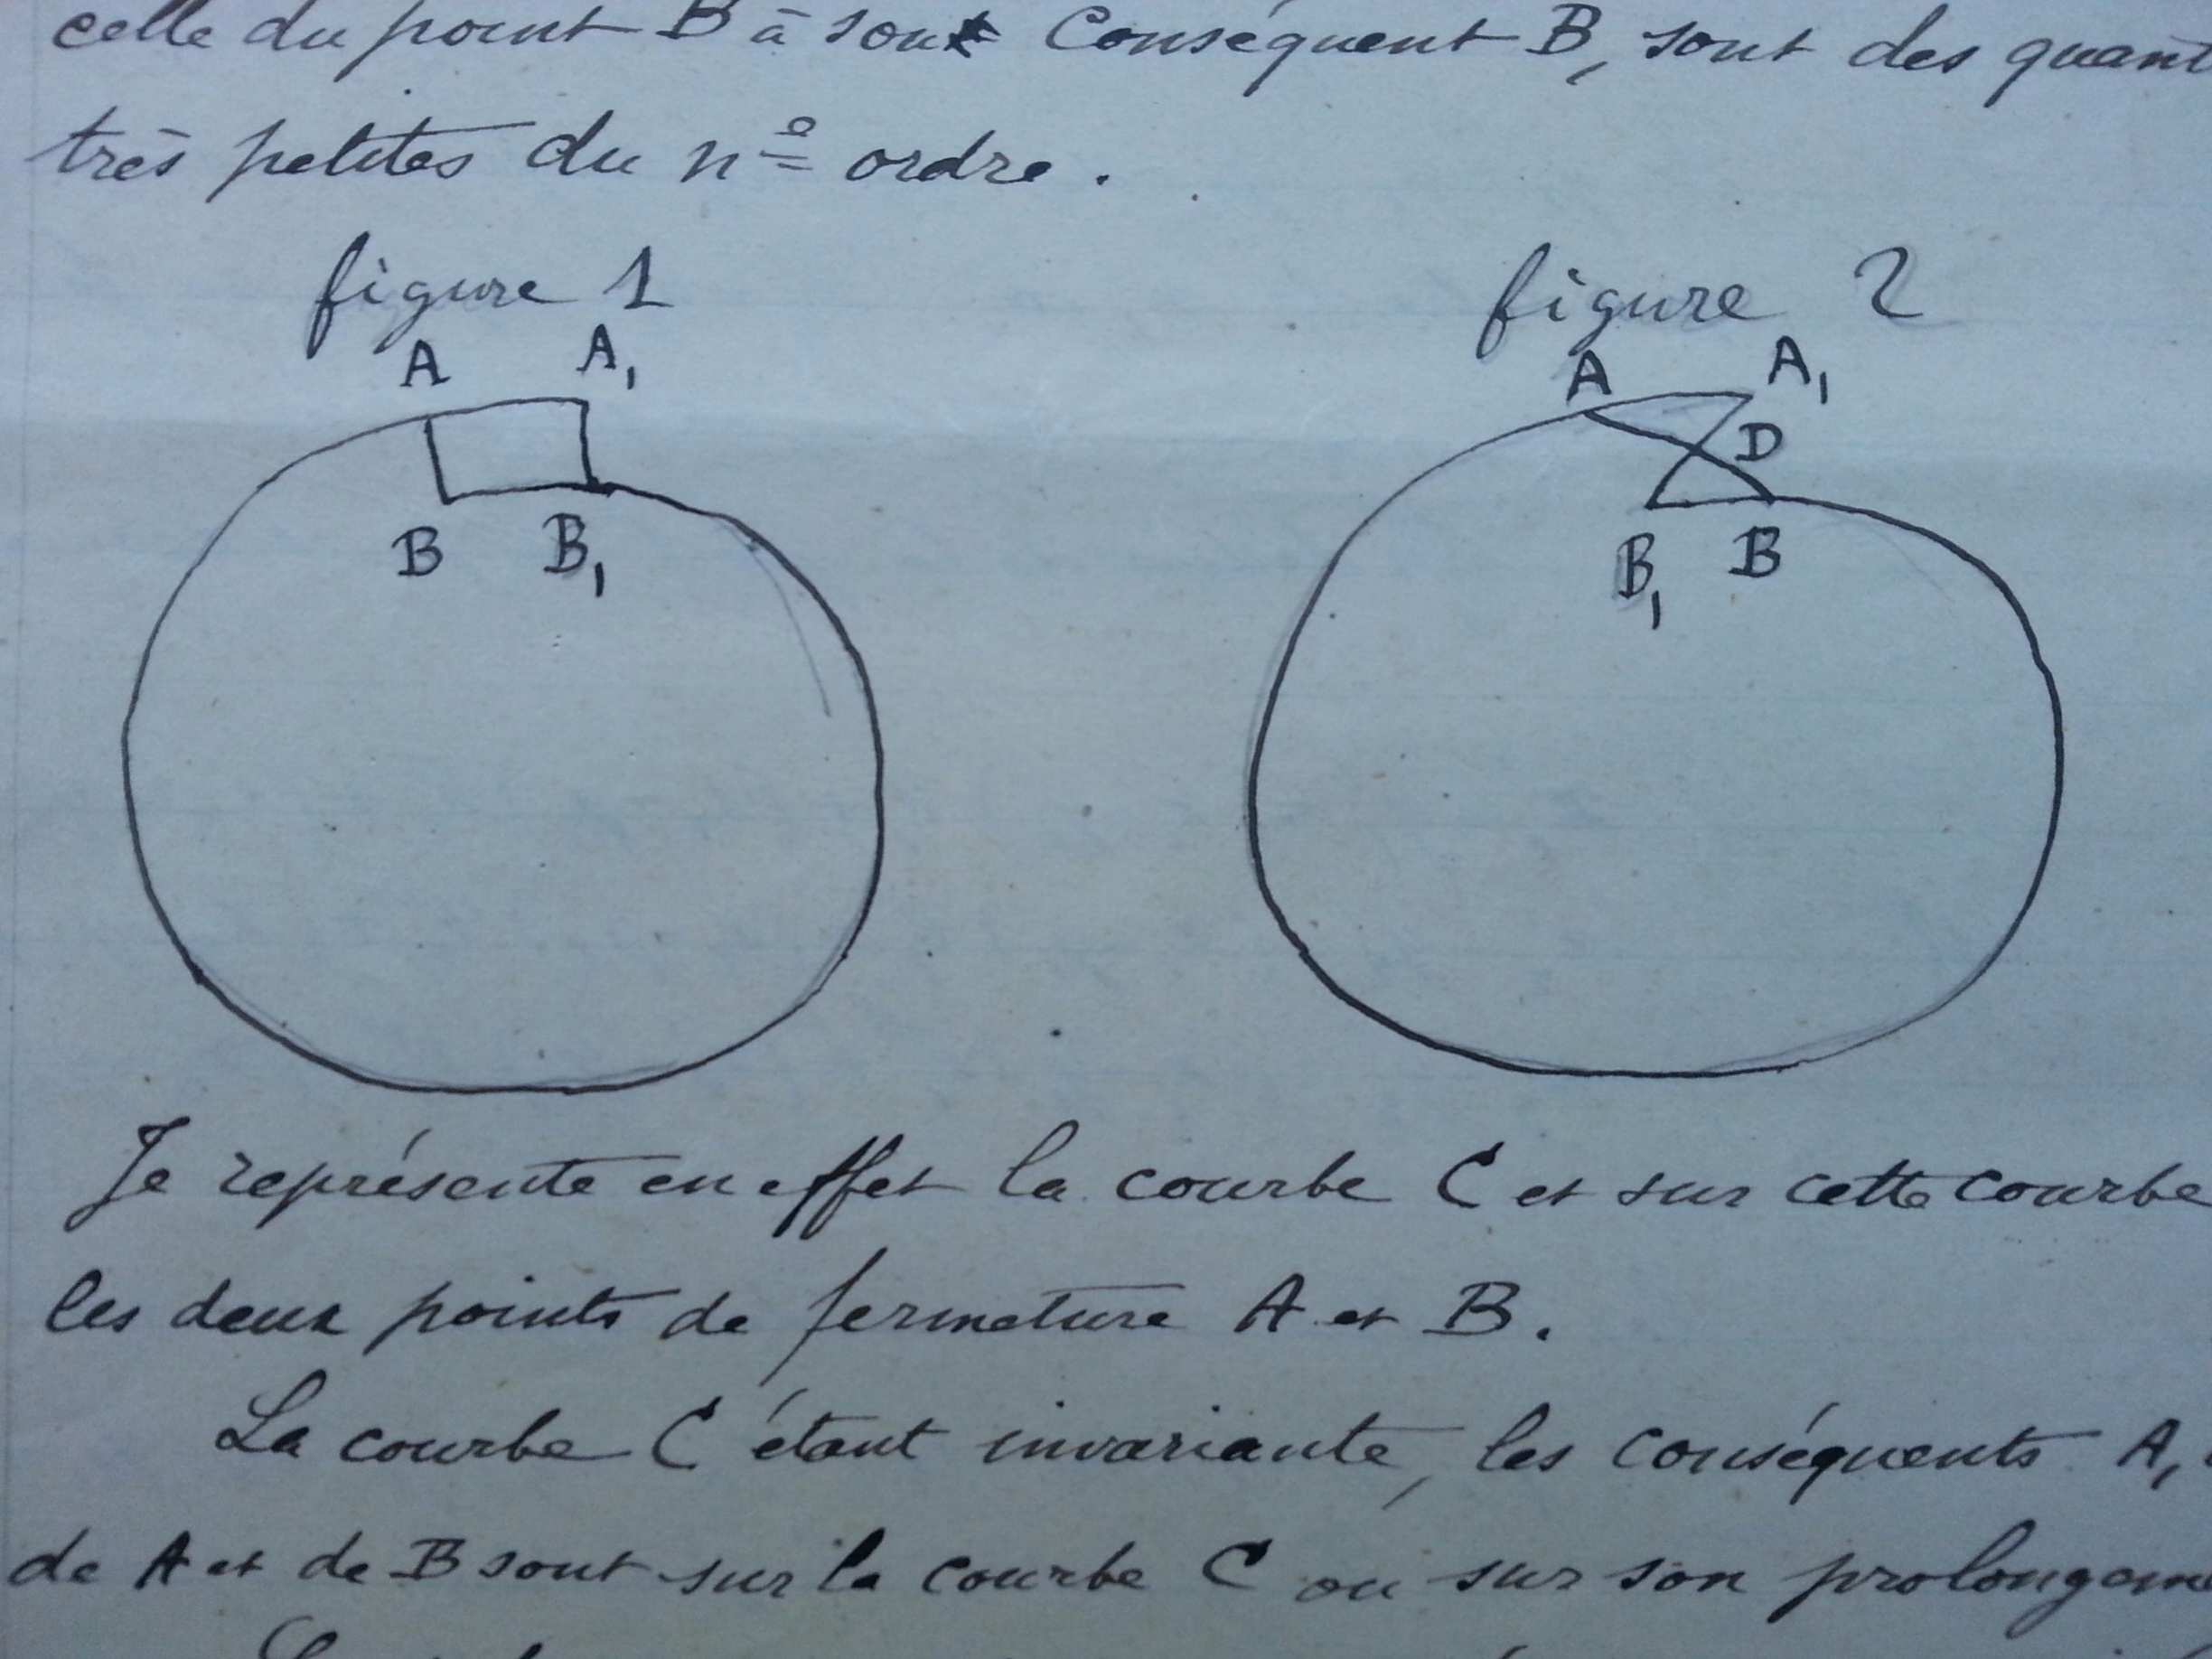 celle du point B à son Conséquent B, sont des quant
très petites du ne ordre.
figure 1
figure 2
A A1
A A1
D
B B1
B1 B
Je représente en effet la courbe C et sur cette courbe
les deux points de fermeture A et B.
La courbe C étant invariante, les conséquents A1
de A et de B sont sur la courbe C ou sur son prolongeme